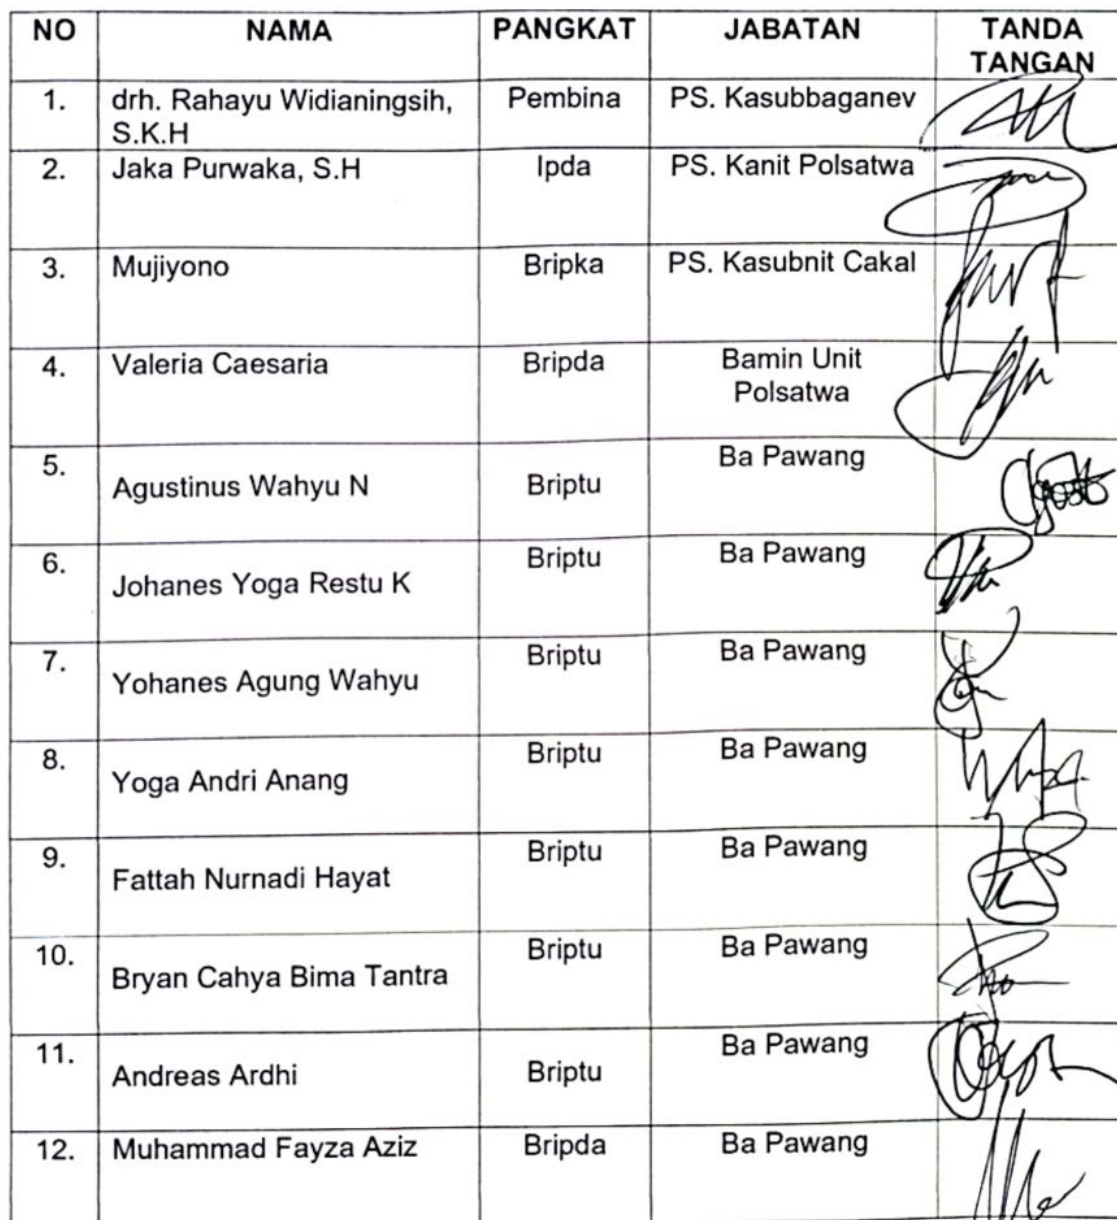 NO NAMA PANGKAT JABATAN TANDA
TANGAN
1. drh. Rahayu Widianingsih, Pembina PS. Kasubbaganev
S.K.H
2. Jaka Purwaka, S.H Ipda PS. Kanit Polsatwa
3. Mujiyono Bripka PS. Kasubnit Cakal
4. Valeria Caesaria Bripda Bamin Unit
Polsatwa
5. Agustinus Wahyu N Briptu Ba Pawang
6. Johanes Yoga Restu K Briptu Ba Pawang
7. Yohanes Agung Wahyu Briptu Ba Pawang
8. Yoga Andri Anang Briptu Ba Pawang
9. Fattah Nurnadi Hayat Briptu Ba Pawang
10. Bryan Cahya Bima Tantra Briptu Ba Pawang
11. Andreas Ardhi Briptu Ba Pawang
12. Muhammad Fayza Aziz Bripda Ba Pawang